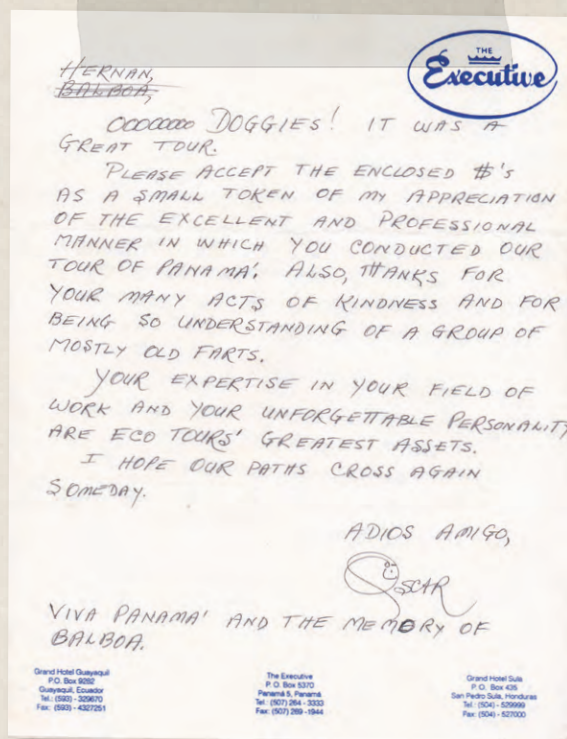 THE
Executive
HERNAN,
BALBOA,
OOOOOOO DOGGIES! IT WAS A
GREAT TOUR.
PLEASE ACCEPT THE ENCLOSED $'S
AS A SMALL TOKEN OF MY APPRECIATION
OF THE EXCELLENT AND PROFESSIONAL
MANNER IN WHICH YOU CONDUCTED OUR
TOUR OF PANAMÁ. ALSO, THANKS FOR
YOUR MANY ACTS OF KINDNESS AND FOR
BEING SO UNDERSTANDING OF A GROUP OF
MOSTLY OLD FARTS.
YOUR EXPERTISE IN YOUR FIELD OF
WORK AND YOUR UNFORGETTABLE PERSONALITY
ARE ECO TOURS' GREATEST ASSETS.
I HOPE OUR PATHS CROSS AGAIN
SOMEDAY.
ADIOS AMIGO,
OSCAR
VIVA PANAMÁ AND THE MEMORY OF
BALBOA.
Grand Hotel Guayaquil
P.O. Box 9282
Guayaquil, Ecuador
Tel.: (593) - 329670
Fax: (593) - 4327251
The Executive
P.O. Box 5370
Panamá 5, Panamá
Tel: (507) 264 - 3333
Fax: (507) 269 -1944
Grand Hotel Sula
P.O. Box 435
San Pedro Sula, Honduras
Tel: (504) - 529999
Fax: (504) - 527000